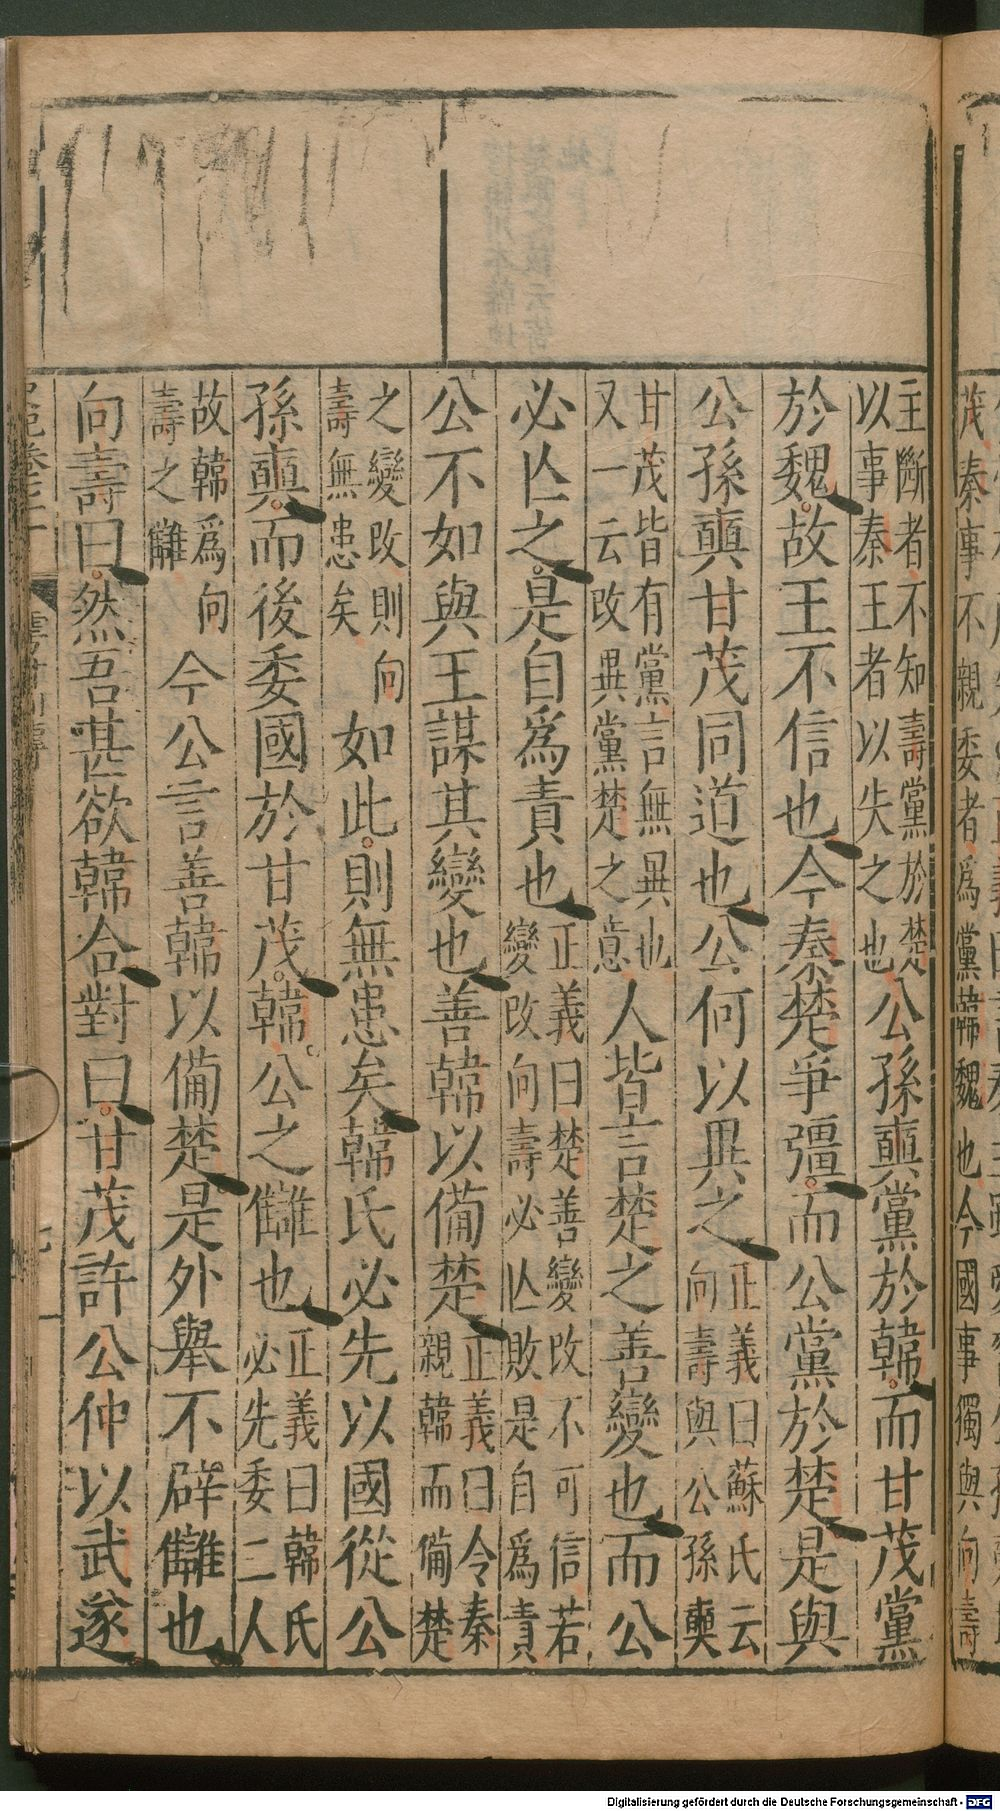 茂秦事不親委者爲黨韓魏也今國事獨與向壽
主斷者不知壽黨於楚
以事秦王者以失之也
公孫奭黨於韓而甘茂黨
於魏故王不信也今秦楚爭彊而公黨於楚是與
公孫奭甘茂同道也公何以異之
正義曰蘇氏云
向壽與公孫奭
甘茂皆有黨言無異也
又一云改異黨楚之意
人皆言楚之善變也而公
必亾之是自爲責也
正義曰楚善變改不可信若
變改向壽必亾敗是自爲責
公不如與王謀其變也善韓以備楚
正義曰令秦
親韓而備楚
之變改則向
壽無患矣
如此則無患矣韓氏必先以國從公
孫奭而後委國於甘茂韓公之讎也
正義曰韓氏
必先委二人
故韓爲向
壽之讎
今公言善韓以備楚是外舉不辟讎也
向壽曰然吾甚欲韓合對曰甘茂許公仲以武遂
七
Digitalisierung gefördert durch die Deutsche Forschungsgemeinschaft - DFG